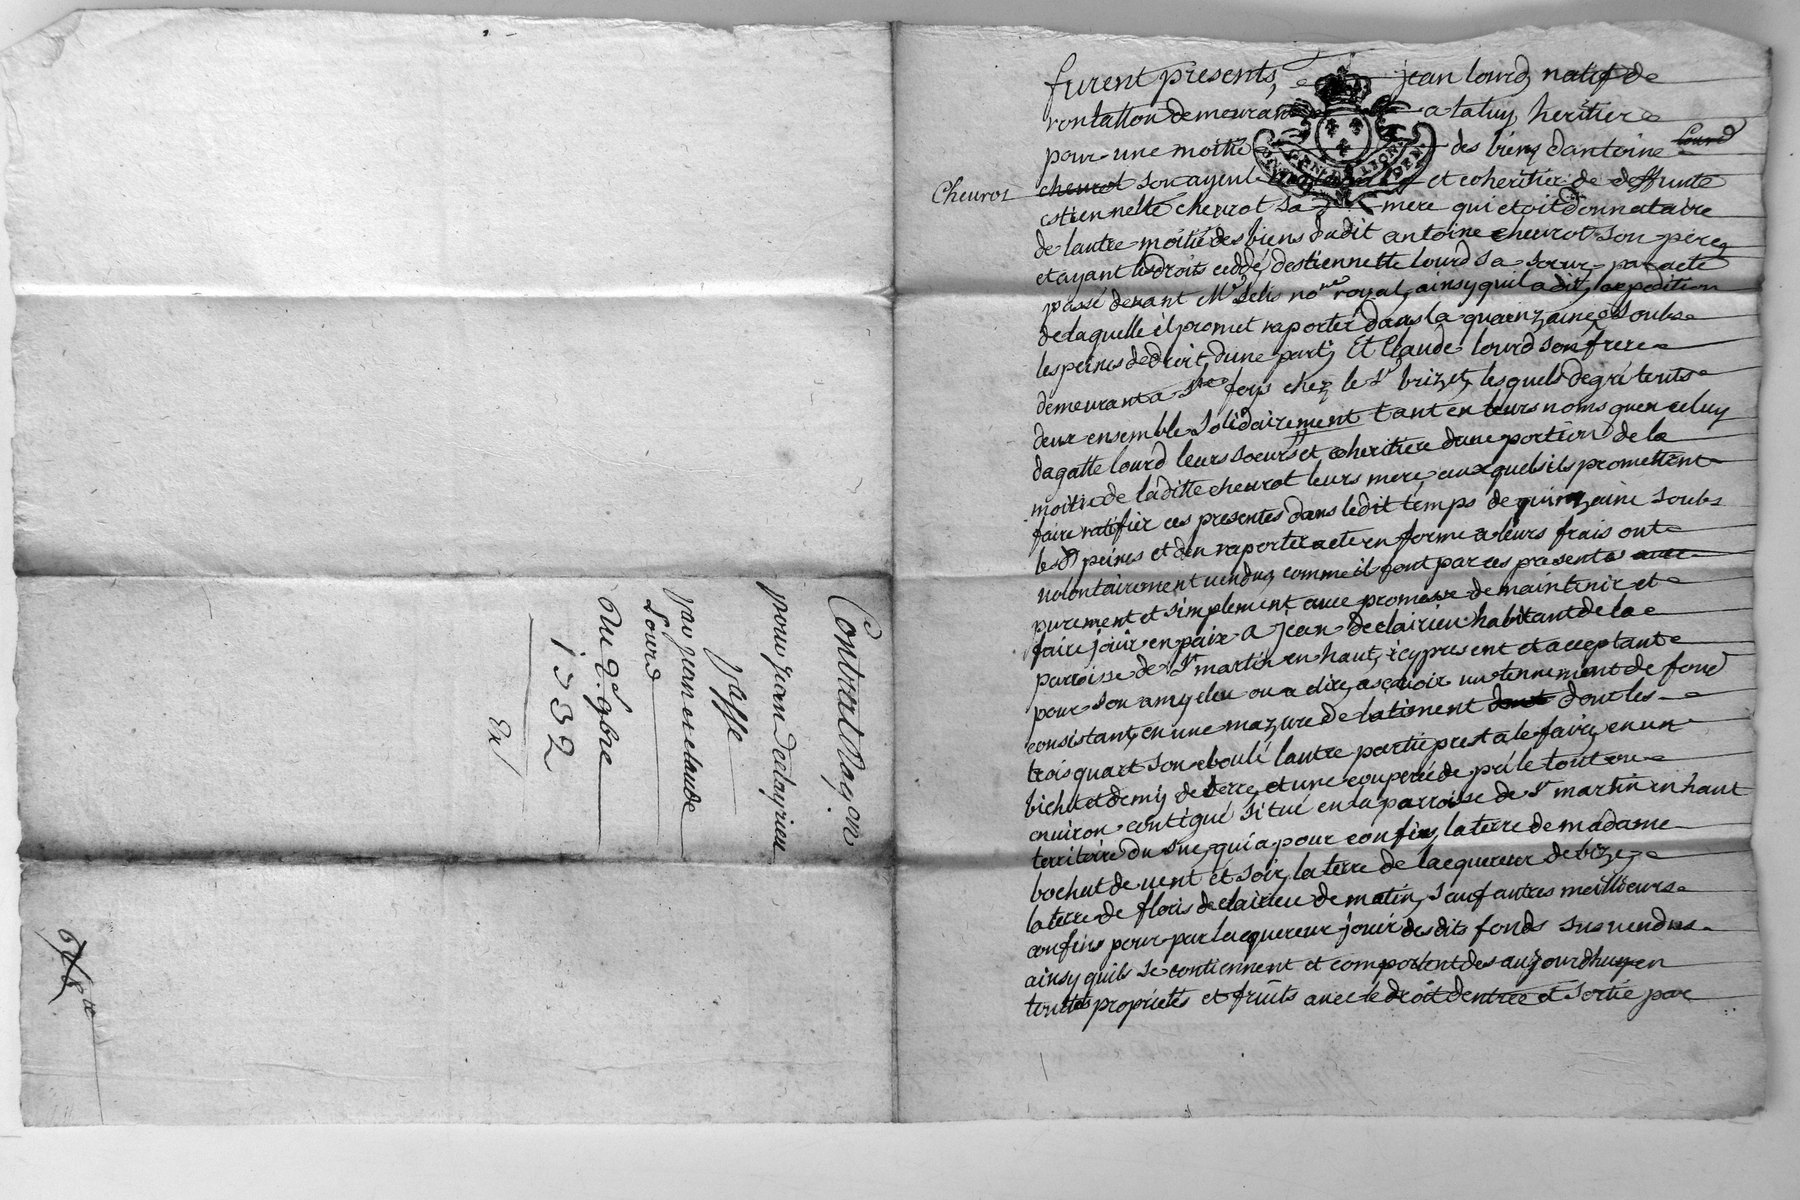 Contrat d'acq.on
pour jean declayrieu
passe
par jean et claude
Lourd
du 2. 9bre
1732
Ex/
furent presents, jean lourd natif de
rontallon demeurant a taluy heritier
pour une moitié des biens dantoine Lourd
Chevrot
chevrot son ayeul et coheritier de deffunte
estiennette chevrot sa mere qui etoit donnataire
de lautre moitié des biens dudit antoine chevrot son pere
et ayant les droits ceddé destiennette lourd sa soeur par acte
passé devant Me Delis nore royal, ainsy quil a dit, expedition
de laquelle il promet raporter dans la quainzaine soubs
les peines de droit, dune part, Et Claude lourd son frere
demeurant a Ste foys chez le Sr brizet, lesquels de gré touts
deux ensemble solidairement tant en leurs noms quen celuy
dagatte lourd leurs soeurs et coheritiere dune portion de la
moitié de laditte chevrot leurs mere, auxquels ils promettent
faire ratifier ces presentes dans ledit temps de quinzaine soubs
les d peines et den raporter acte en forme a leurs frais ont
volontairement vendus comme il font par ces presentes avec
purement et simplement avec promesse de maintenir et
faire jouir en paix a jean declairieu habitant de la
parroisse de St martin en haut, icy present et acceptant
pour son amy eleu ou a elire, asçavoir un tennement de fond
consistant en une mazure de batiment dont dont les
trois quart son eboulé lautre partie prest a le faire, en un
bichet et demy de terre, et une couperée de pré le tout ou
environ contigué situé en la parroisse de St martin en haut
territoire du sue, qui a pour confins, la terre de madame
bochut de vent et soir, la terre de lacquereur de bize,
la terre de floris declairieu de matin, sauf autres meillieurs
confins pour par lacquereur jouir desdits fonds susvendus
ainsy quils se contiennent et comportent des aujourdhuy en
touttes proprietés et fruits avec le droit dentrée et sortie par